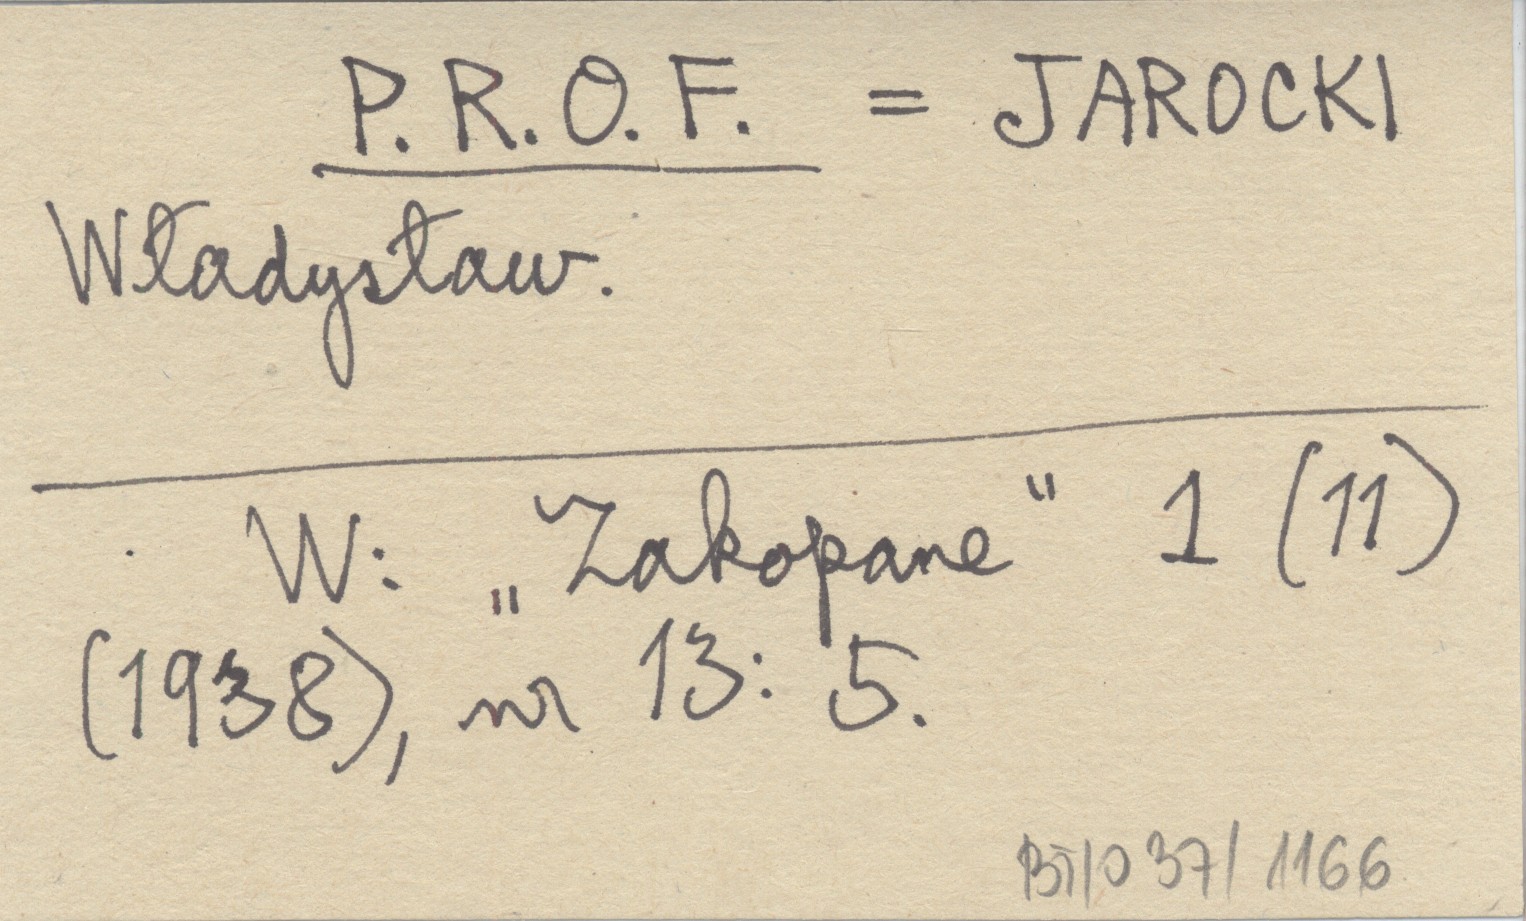 P.R.O.F. = JAROCKI
Władysław.
W: „Zakopane" 1 (11)
(1938), nr 13: 5.
BT/037/1166